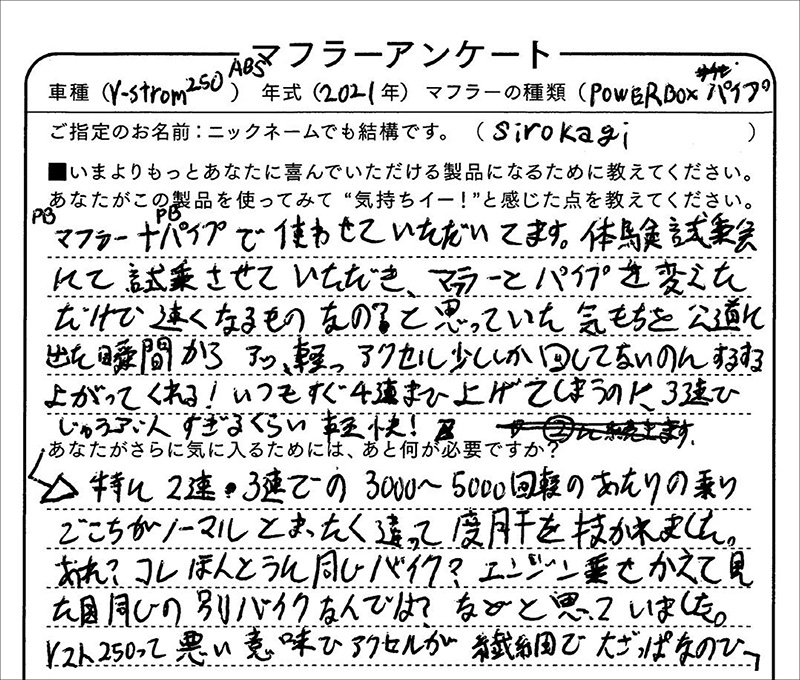 マフラーアンケート
車種（V-strom250 ABS） 年式（2021年） マフラーの種類（POWERBOX パイプ）
ご指定のお名前：ニックネームでも結構です。（sirokagi）
■いまよりもっとあなたに喜んでいただける製品になるために教えてください。
あなたがこの製品を使ってみて“気持ちイー！”と感じた点を教えてください。
PB PB
マフラー＋パイプで使わせていただいてます。体験試乗会
にて試乗させていただき、マフラーとパイプを変えた
だけで速くなるものなの？と思っていた気もちを公道に
出た瞬間から アッ、軽っ アクセル少ししか回してないのにするする
上がってくれる！いつもすぐ4速まで上げてしまうのに、3速で
じゅうぶんすぎるくらい軽快！
あなたがさらに気に入るためには、あと何が必要ですか？
特に2速・3速での3000〜5000回転のあたりの乗り
ごこちがノーマルとまったく違って度肝を抜かれました。
あれ？コレほんとうに同じバイク？エンジン乗せかえて見
た目同じの別バイクなんでは？などと思っていました。
Vスト250って悪い意味でアクセルが繊細で大ざっぱなので